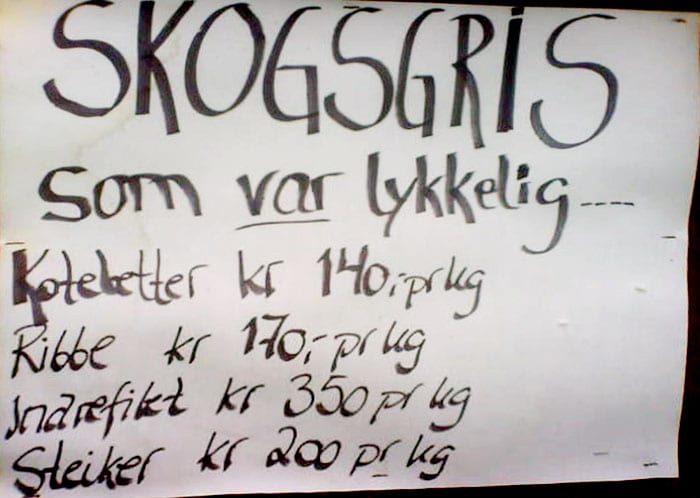 SKOGSGRIS
som var lykkelig....
Koteletter kr 140,- pr kg
Ribbe kr 170,- pr kg
Indrefilet kr 350 pr kg
Steiker kr 200 pr kg